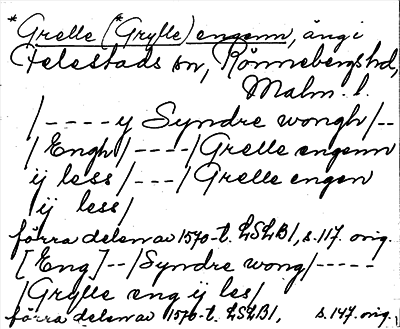 *Grelle (*Grylle) engenn, äng i
Felestads sn, Rönnebergs hd,
Malm. l.
/----y Syndre wongh/--
/Engh/----/Grelle engenn
ij less/---/Grelle engen
ij less/
förra delen av 1570-t. LSLB1, s. 117. orig.
[Eng]--/Syndre wong/-----
/Grylle eng ij les/
förra delen av 1570-t. LSLB1, s. 147. orig.,